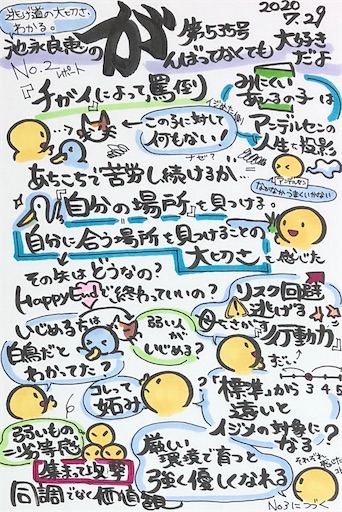 逃げ道の大切さ、
わかる。
2020
7.29
池永良恵の
が
第535号
んばってなくても
大好き
だよ
No.2
レポート
『チガイ』によって罵倒
みにくい
あひるの子は
アンデルセンの
人生を投影
この子に対し
何もない!
ナゼ?
アンデルセン
なかなかうまくいかない
あちこちで苦労し続けるが…
『自分の場所』を見つける。
自分に合う場所を見つけることの
大切さ
を感じた
その先はどうなの?
Happy Endで終わっていいの?
リスク回避
逃げる
『行動力』
いじめる方は
白鳥だと
わかってた?
弱い人
が
いじめる?
コレって
妬み
?
3 4 5
『標準』から
遠いと
イジメの対象に
なる?
弱いもの
劣等感
集まって攻撃
同調でなく価値観
厳しい
環境で育つと
強く優しくなれる
それぞれ
No3につづく